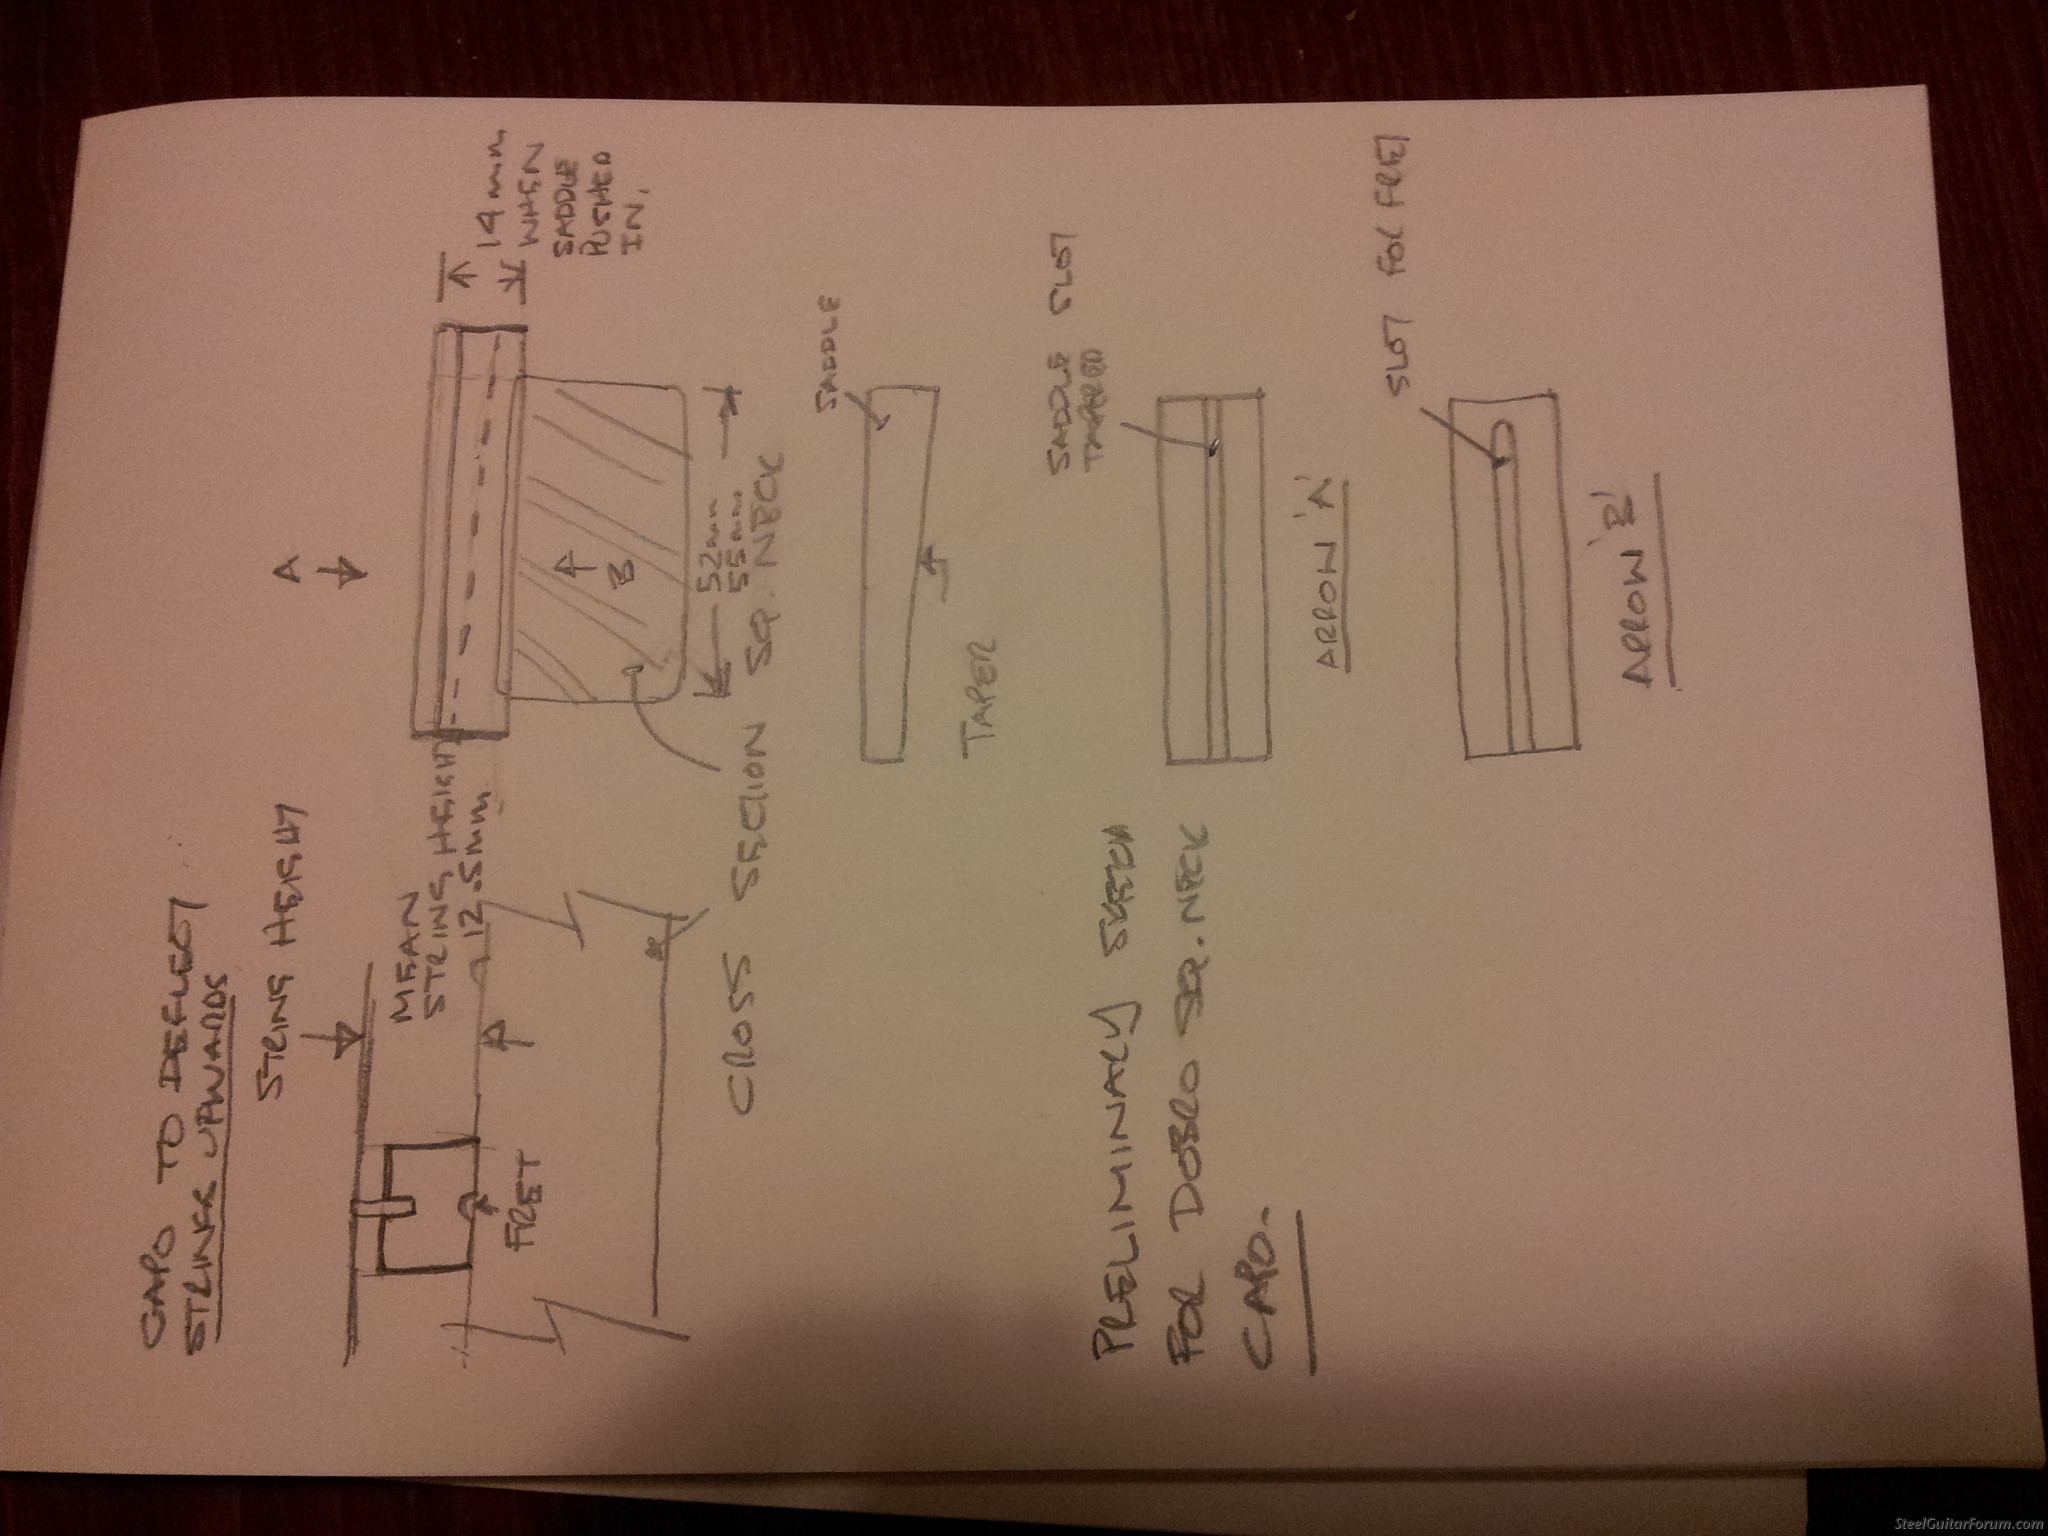 CAPO TO DEFLECT
STRINGS UPWARDS
STRING HEIGHT
MEAN
STRING HEIGHT
12.5mm
FRET
CROSS SECTION
A
B
14mm
WHEN
SADDLE
PUSHED
IN.
52mm
55mm
SQ. NECK
SADDLE
TAPER
SADDLE SLOT
TAPERED
ARROW 'A'
SLOT FOR FRET
ARROW 'B'
PRELIMINARY SKETCH
FOR DOBRO SQ. NECK
CAPO.
SteelGuitarForum.com